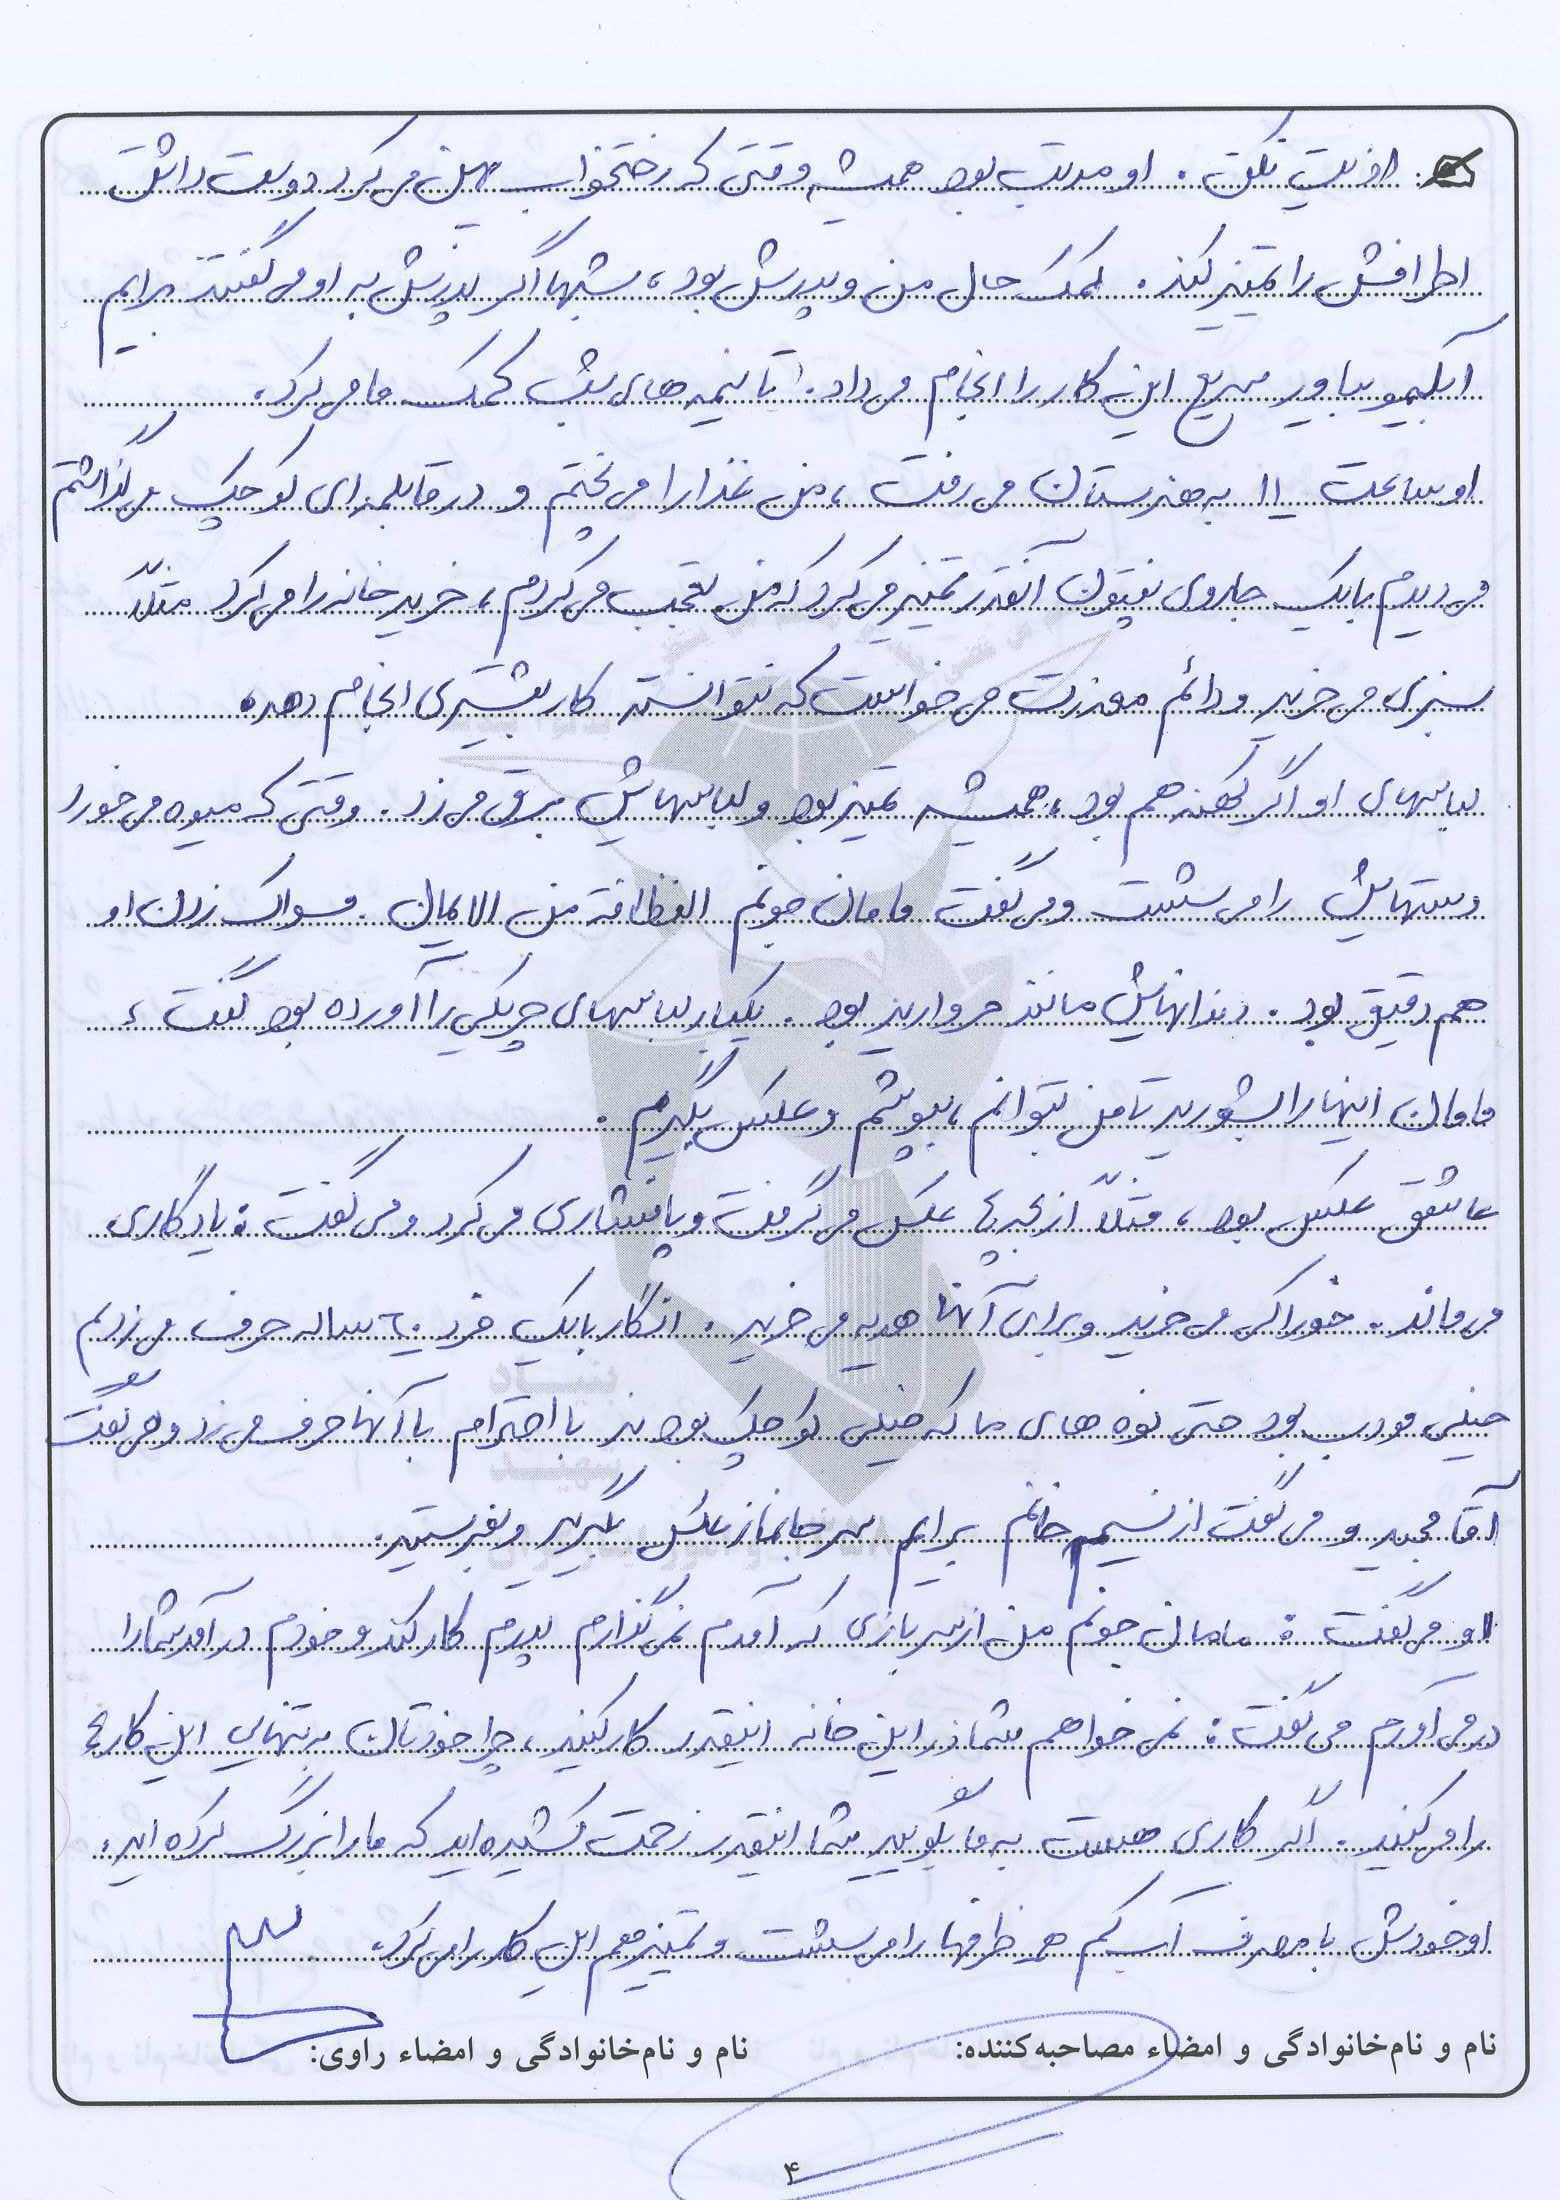 اذیت نکن. او مرتب بود همیشه وقتی که رختخواب پهن می کرد دوست داشت
اطرافش را تمیز کند. کمک حال من و پدرش بود، شبها اگر پدرش به او می گفتند برایم
آبلیمو بیاور سریع این کار را انجام می داد. تا نیمه های شب کمک ما می کرد.
او ساعت ۱۱ به هنرستان می رفت، من غذا را می پختم و در قابلمه ای کوچک می گذاشتم
می دیدم با یک جاروی نپتون آنقدر تمیز می کرد که من تعجب می کردم، خرید خانه را می کرد مثلاً
سبزی می خرید و دائم معذرت می خواست که نتوانسته کار بیشتری انجام دهد.
لباسهای او اگر کهنه هم بود، همیشه تمیز بود و لباسهایش برق می زد. وقتی که میوه می خورد
دستهایش را می شست و می گفت مامان جونم النظافة من الایمان. مسواک زدن او
هم دقیق بود. دندانهایش مانند مروارید بود. یکبار لباسهای چریکی را آورده بود گفت،
مامان اینها را بشورید تا من بتوانم، بپوشم و عکس بگیرم.
عاشق عکس بود، مثلاً از بچه ها عکس می گرفت و پافشاری می کرد و می گفت: یادگاری
می ماند. خوراکی می خرید و برای آنها هدیه می خرید. انگار با یک فرد ۲۰ ساله حرف می زدیم
خیلی مودب بود حتی نوه های ما که خیلی کوچک بودند با احترام با آنها حرف می زد و می گفت
آقا مجید و می گفت از نسیم خانم برایم سر جانماز عکس بگیرید و بفرستید.
او می گفت: مامان جونم من از سربازی که آمدم نمی گذارم پدرم کار کند و خودم درآمد شما را
در می آورم می گفت: نمی خواهم شما در این خانه اینقدر کار کنید، چرا خودتان به تنهایی این کارها
را می کنید. اگر کاری هست به ما بگویید شما اینقدر زحمت کشیده اید که ما را بزرگ کرده اید.
او خودش با مصرف آب کم هم ظرفها را می شست و تمیز هم این کار را می کرد.
نام و نام‌خانوادگی و امضاء مصاحبه‌کننده: نام و نام‌خانوادگی و امضاء راوی:
۴